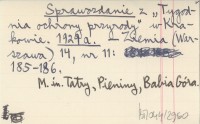 Sprawozdanie z „Tygod-
nia ochrony przyrody" w Kra-
kowie. 1929a. – Ziemia (War-
szawa) 14, nr 11:
185-186.
M. in. Tatry, Pieniny, Babia Góra.